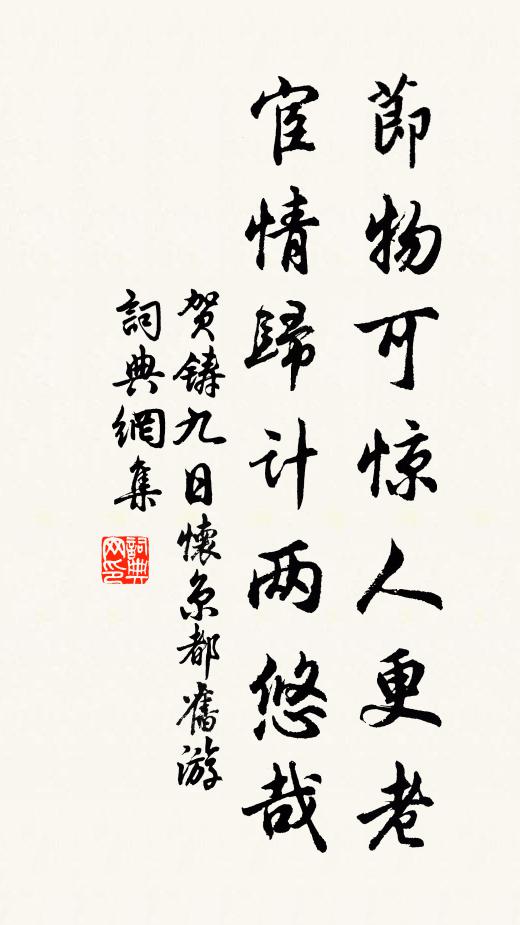 節物可惊人更老
宦情歸计两悠哉
贺鑄九日懷京都舊游
詞典網集
詞典網印